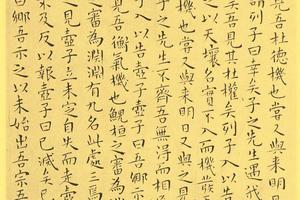 見吾杜德機也嘗又與來明日又與
謂列子曰幸矣子之先生遇我
矣吾見其杜權矣列子入以告
之以天壤名實不入而機發
機也嘗又與來明日又與之見
子之先生不齊吾無得而相
子入以告壺子曰吾鄉示
見吾衡氣機也鯢桓之審為淵
審為淵淵有九名此處三焉
之見壺子立未定自失而走壺
未及反以報壺子曰已滅矣
曰鄉吾示之以未始出吾宗吾